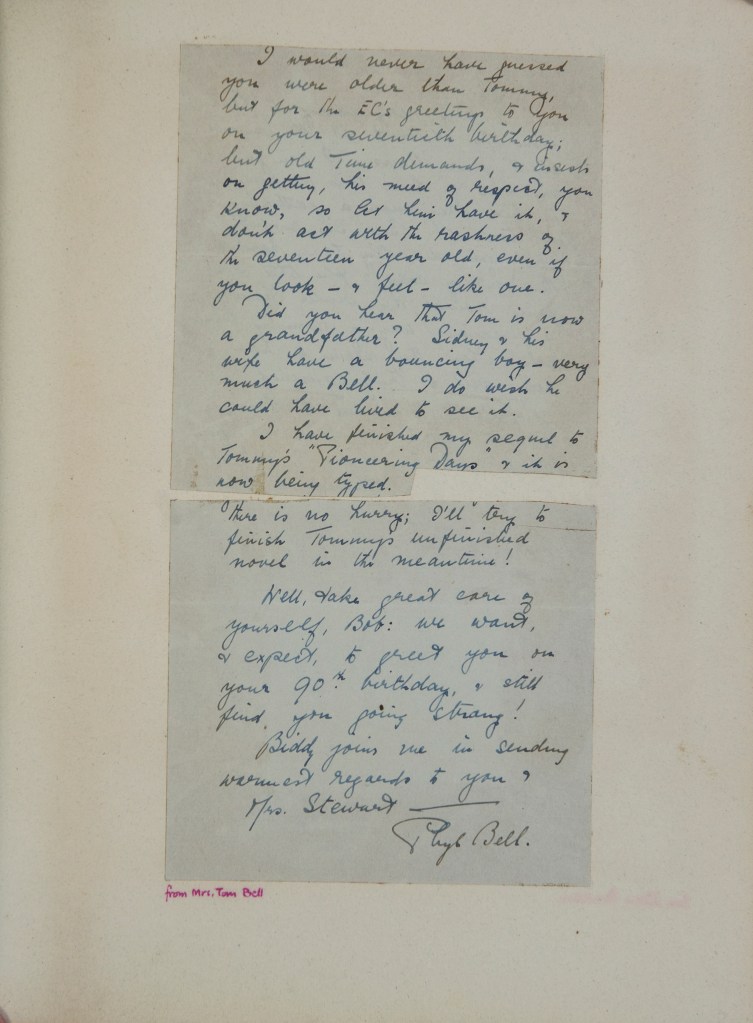 I would never have guessed
you were older than Tommy,
but for the EC's greetings to you
on your seventieth birthday;
but old Time demands, & insists
on getting, his meed of respect, you
know, so let him have it, &
don't act with the rashness of
the seventeen year old, even if
you look – & feel – like one.
Did you hear that Tom is now
a grandfather? Sidney & his
wife have a bouncing boy – very
much a Bell. I do wish he
could have lived to see it.
I have finished my sequel to
Tommy's "Pioneering Days" & it is
now being typed.
There is no hurry; I'll try to
finish Tommy's unfinished
novel in the meantime!
Well, take great care of
yourself, Bob: we want,
& expect, to greet you on
your 90th birthday, & still
find you going strong!
Biddy joins me in sending
warmest regards to you &
Mrs. Stewart
Phyl Bell.
from Mrs. Tom Bell